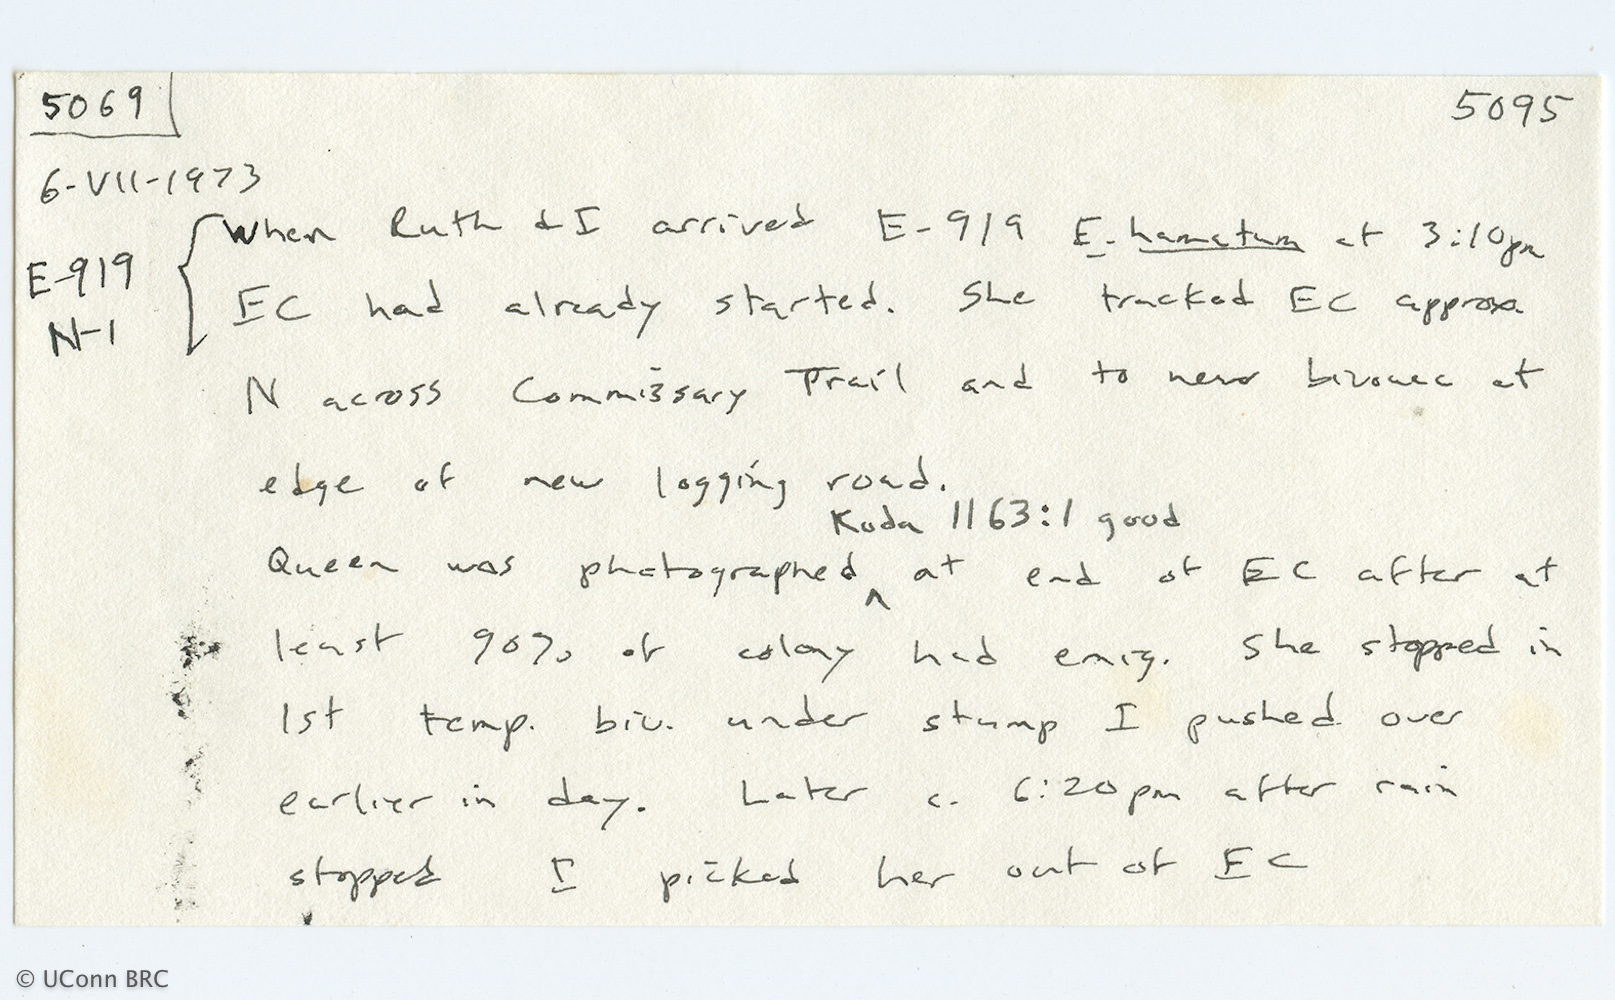 5069 5095
6-VII-1973
When Ruth & I arrived E-919 E. hamatum at 3:10pm
E-919
N-1
EC had already started. She tracked EC approx.
N across Commissary Trail and to new bivouac at
edge of new logging road.
Koda 1163:1 good
Queen was photographed ^ at end of EC after at
least 90% of colony had emig. She stopped in
1st temp. biv. under stump I pushed over
earlier in day. Later c. 6:20pm after rain
stopped I picked her out of EC
© UConn BRC